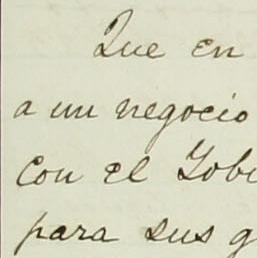 Que en
a un negocio
con el Gobi
para sus g